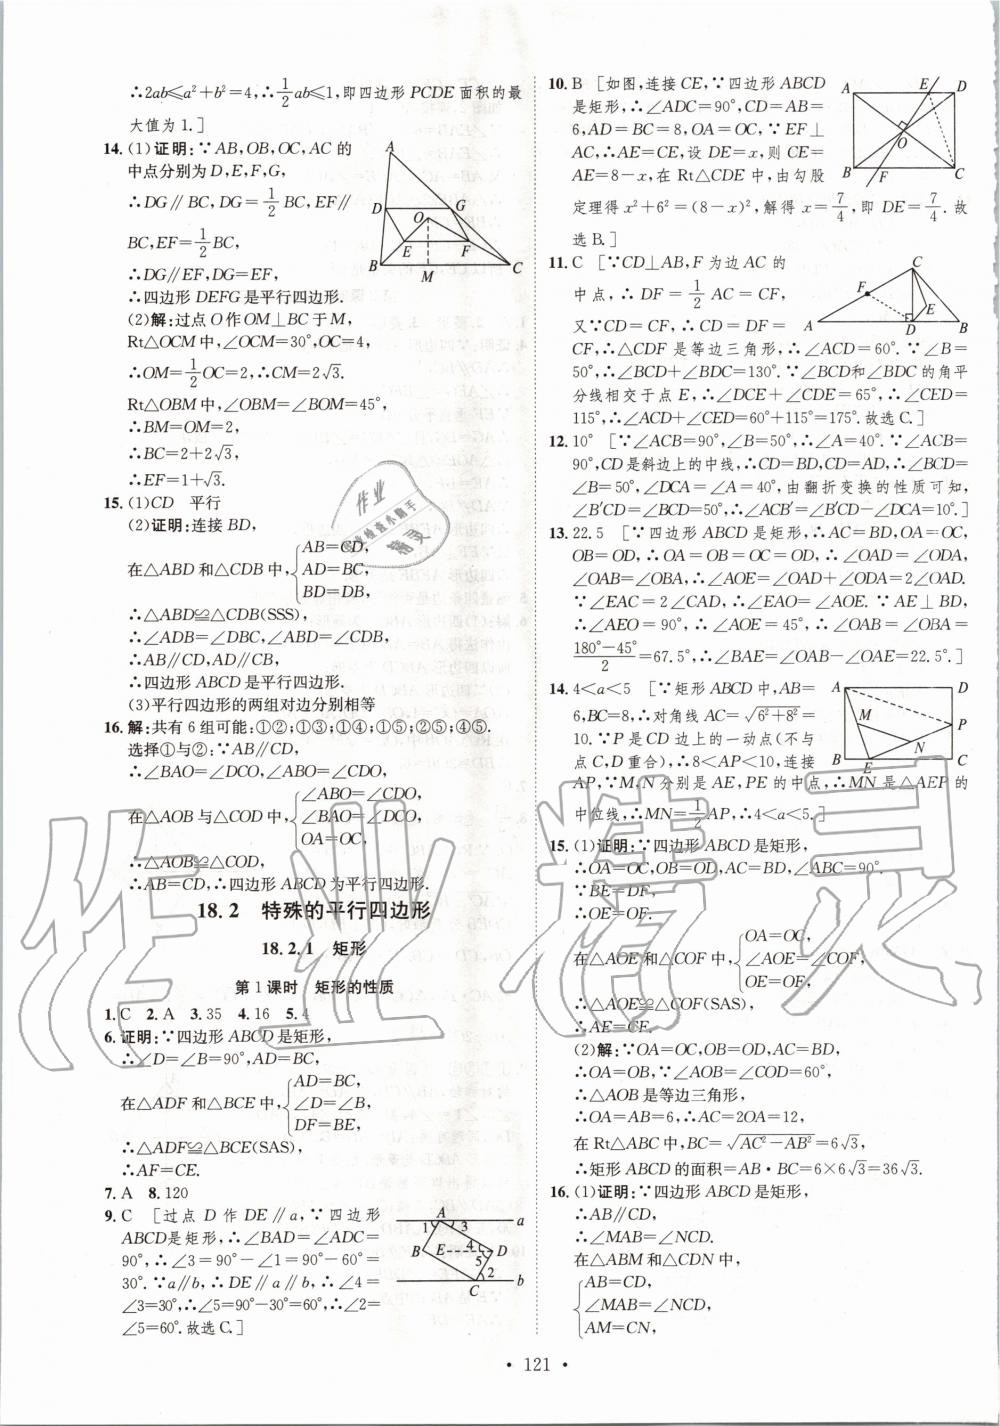 ∴2ab≤a²+b²=4,∴1/2ab≤1,即四边形 PCDE 面积的最
大值为1.]
14. (1)证明:∵AB,OB,OC,AC 的
中点分别为D,E,F,G,
∴DG∥BC,DG=1/2BC,EF∥
BC,EF=1/2BC,
∴DG∥EF,DG=EF,
∴四边形 DEFG 是平行四边形.
(2)解:过点O作OM⊥BC于M,
Rt△OCM中,∠OCM=30°,OC=4,
∴OM=1/2OC=2,∴CM=2√3.
Rt△OBM中,∠OBM=∠BOM=45°,
∴BM=OM=2,
∴BC=2+2√3,
∴EF=1+√3.
15. (1)CD 平行
(2)证明:连接BD,
在△ABD和△CDB中,{AB=CD,
AD=BC,
BD=DB,
∴△ABD≌△CDB(SSS),
∴∠ADB=∠DBC,∠ABD=∠CDB,
∴AB∥CD,AD∥CB,
∴四边形ABCD是平行四边形.
(3)平行四边形的两组对边分别相等
16. 解:共有6组可能:①②;①③;①④;①⑤;②⑤;④⑤.
选择①与②:∵AB∥CD,
∴∠BAO=∠DCO,∠ABO=∠CDO,
在△AOB与△COD中,{∠ABO=∠CDO,
∠BAO=∠DCO,
OA=OC,
∴△AOB≌△COD,
∴AB=CD,∴四边形ABCD为平行四边形.
18.2 特殊的平行四边形
18.2.1 矩形
第1课时 矩形的性质
1.C 2.A 3.35 4.16 5.4
6. 证明:∵四边形ABCD是矩形,
∴∠D=∠B=90°,AD=BC,
在△ADF和△BCE中,{AD=BC,
∠D=∠B,
DF=BE,
∴△ADF≌△BCE(SAS),
∴AF=CE.
7.A 8.120
9. C [过点D作DE∥a,∵四边形
ABCD是矩形,∴∠BAD=∠ADC=
90°,∴∠3=90°-∠1=90°-60°=
30°.∵a∥b,∴DE∥a∥b,∴∠4=
∠3=30°,∴∠5=90°-30°=60°,∴∠2=
∠5=60°.故选C.]
A D G O E F B M C
A 1 3 a B E 4 D 5 2 C b
10. B [如图,连接CE,∵四边形ABCD
是矩形,∴∠ADC=90°,CD=AB=
6,AD=BC=8,OA=OC,∵EF⊥
AC,∴AE=CE,设DE=x,则CE=
AE=8-x,在Rt△CDE中,由勾股
定理得x²+6²=(8-x)²,解得x=7/4,即DE=7/4.故
选B.]
11. C [∵CD⊥AB,F为边AC的
中点,∴DF=1/2AC=CF,
又∵CD=CF,∴CD=DF=
CF,∴△CDF是等边三角形,∴∠ACD=60°.∵∠B=
50°,∴∠BCD+∠BDC=130°.∵∠BCD和∠BDC的角平
分线相交于点E,∴∠DCE+∠CDE=65°,∴∠CED=
115°,∴∠ACD+∠CED=60°+115°=175°.故选C.]
12. 10° [∵∠ACB=90°,∠B=50°,∴∠A=40°.∵∠ACB=
90°,CD是斜边上的中线,∴CD=BD,CD=AD,∴∠BCD=
∠B=50°,∠DCA=∠A=40°,由翻折变换的性质可知,
∠B′CD=∠BCD=50°,∴∠ACB′=∠B′CD-∠DCA=10°.]
13. 22.5 [∵四边形ABCD是矩形,∴AC=BD,OA=OC,
OB=OD,∴OA=OB=OC=OD,∴∠OAD=∠ODA,
∠OAB=∠OBA,∴∠AOE=∠OAD+∠ODA=2∠OAD.
∵∠EAC=2∠CAD,∴∠EAO=∠AOE.∵AE⊥BD,
∴∠AEO=90°,∴∠AOE=45°,∴∠OAB=∠OBA=
(180°-45°)/2=67.5°,∴∠BAE=∠OAB-∠OAE=22.5°.]
14. 4<a<5 [∵矩形ABCD中,AB=
6,BC=8,∴对角线AC=√(6²+8²)=
10.∵P是CD边上的一动点(不与
点C,D重合),∴8<AP<10,连接
AP,∵M,N分别是AE,PE的中点,∴MN是△AEP的
中位线,∴MN=1/2AP,∴4<a<5.]
15. (1)证明:∵四边形ABCD是矩形,
∴OA=OC,OB=OD,AC=BD,∠ABC=90°.
∵BE=DF,
∴OE=OF.
在△AOE和△COF中,{OA=OC,
∠AOE=∠COF,
OE=OF,
∴△AOE≌△COF(SAS),
∴AE=CF.
(2)解:∵OA=OC,OB=OD,AC=BD,
∴OA=OB,∵∠AOB=∠COD=60°,
∴△AOB是等边三角形,
∴OA=AB=6,∴AC=2OA=12,
在Rt△ABC中,BC=√(AC²-AB²)=6√3,
∴矩形ABCD的面积=AB·BC=6×6√3=36√3.
16. (1)证明:∵四边形ABCD是矩形,
∴AB∥CD,
∴∠MAB=∠NCD.
在△ABM和△CDN中,
{AB=CD,
∠MAB=∠NCD,
AM=CN,
A E D O B F C
C F E A D B
A D M P N B E C
作业精灵
· 121 ·